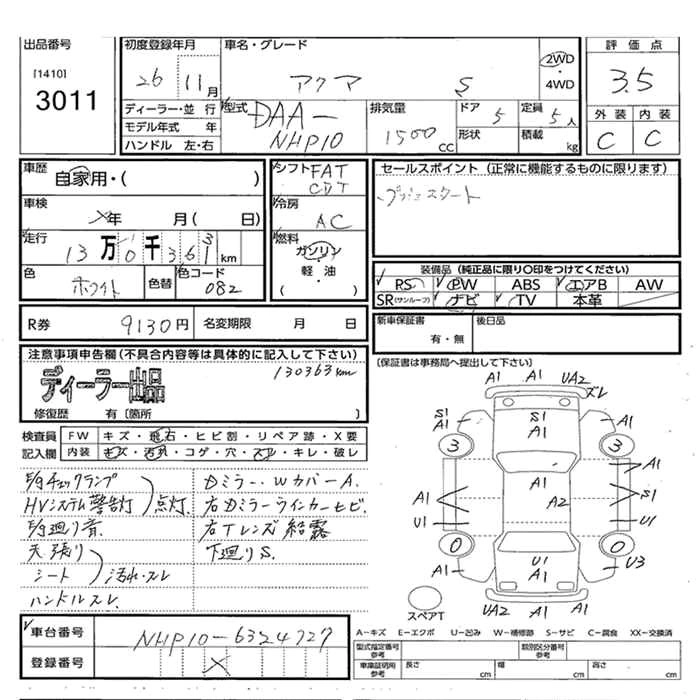 出品番号
[1410]
3011
初度登録年月
26 11月
車名・グレード
アクア S
2WD
・
4WD
評価点
3.5
外装 内装
C C
ディーラー・並行
モデル年式 年
ハンドル 左・右
型式
DAA-
NHP10
排気量
1500 CC
ドア 5
形状
定員 5人
積載 kg
車歴
自家用・( )
車検
×年 月( 日)
走行
13万0千361 km
色
ホワイト
色替
色コード
082
シフト FAT
CDT
冷房
AC
燃料
ガソリン
・
軽・油
・
( )
セールスポイント (正常に機能するものに限ります)
プッシュスタート
装備品 (純正品に限り〇印をつけてください)
RS PW ABS エアB AW
SR(サンルーフ) ナビ TV 本革
R券 9130円 名変期限 月 日
新車保証書
有・無
後日品
(保証書は事務局へ提出して下さい)
注意事項申告欄(不具合内容等は具体的に記入して下さい)
ディーラー出品
130363km
修復歴 有〔箇所 〕
検査員
記入欄
FW キズ・飛石・ヒビ割・リペア跡・X要
内装 キズ・汚れ・コゲ・穴・スレ・キレ・破レ
E/gチェックランプ
HVシステム警告灯 点灯.
E/g廻り音
天張り
シート 汚れ・スレ
ハンドルスレ.
Dミラー・WカバーA.
右Dミラーウインカーヒビ.
右Tレンズ結露
下廻りS.
A1 A1 UA2 ズレ
S1 A1 S1 A1 A1
3 3
A1 A1
A1 A2 S1
U1 U1
0 0
A1 U1 A1 U3
スペアT
UA2 A1 UA2
A-キズ E-エクボ U-凹み W-補修跡 S-サビ C-腐食 XX-交換済
車台番号 NHP10-6324727
登録番号 ×
型式指定番号
参考
類別区分番号
参考
車庫証明用
参考
長さ cm 幅 cm 高さ cm